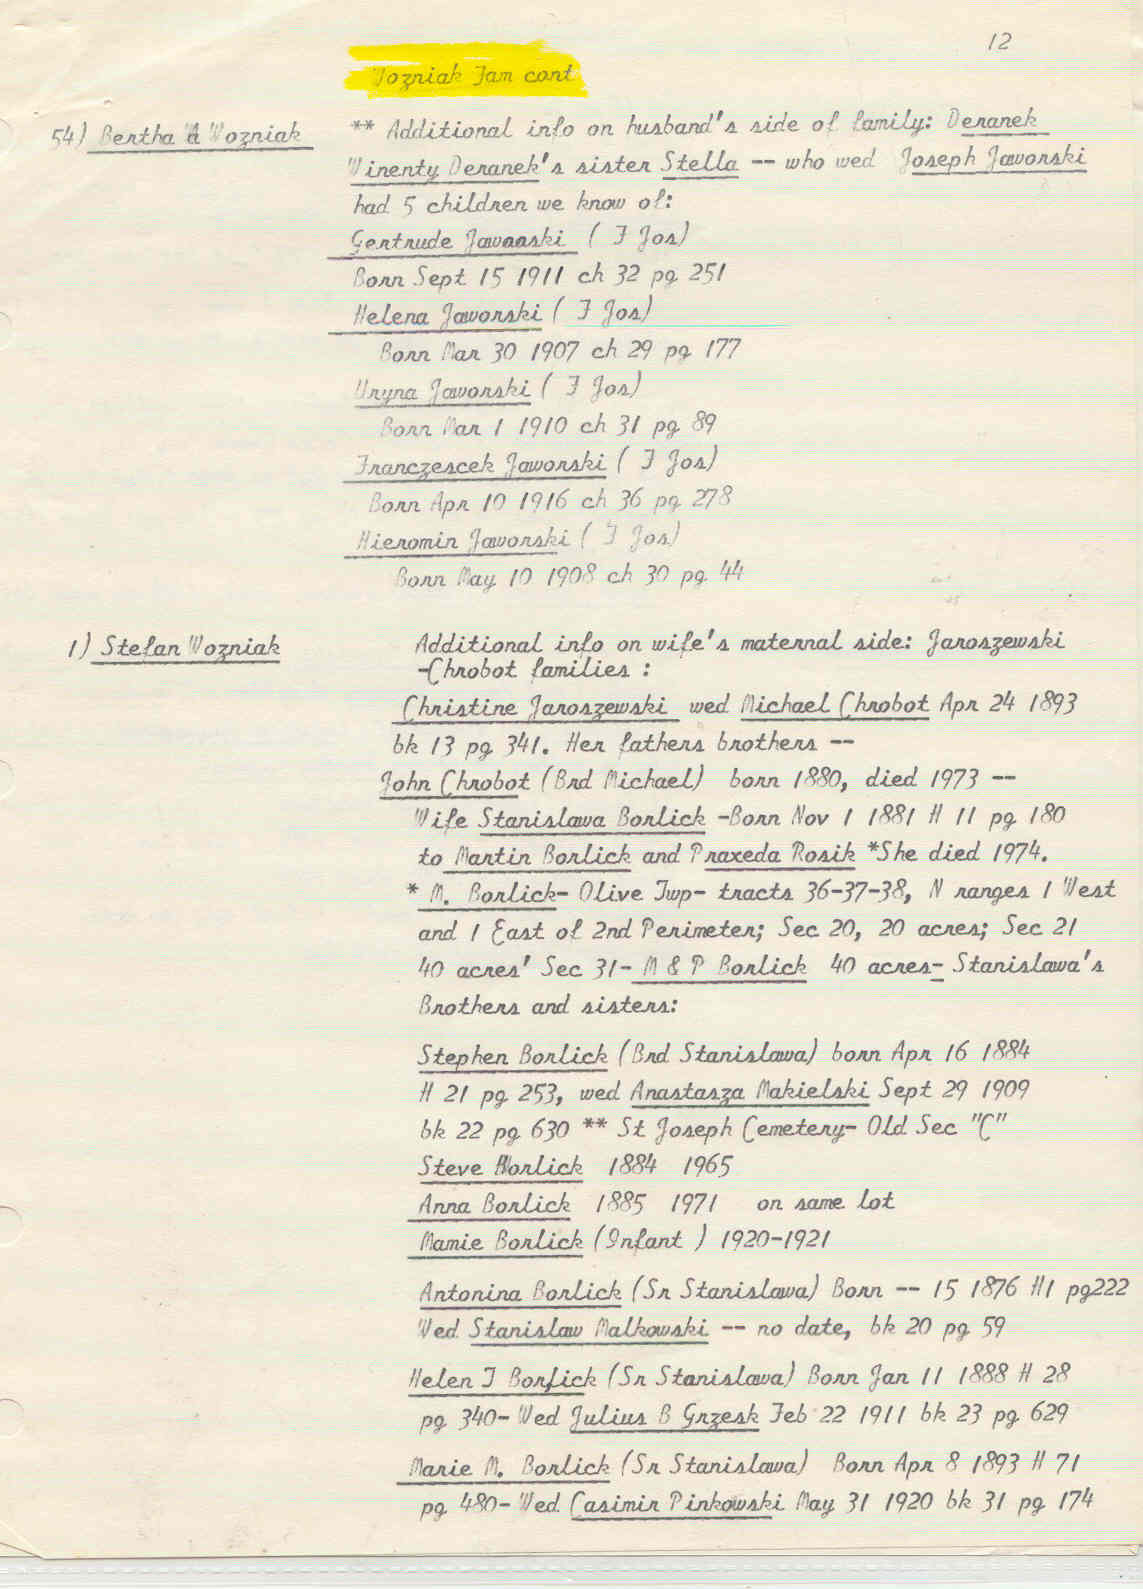 12
Wozniak Fam cont
54) Bertha A Wozniak
** Additional info on husband's side of family: Deranek
Winenty Deranek's sister Stella -- who wed Joseph Jaworski
had 5 children we know of:
Gertrude Jaworski ( F Jos)
Born Sept 15 1911 ch 32 pg 251
Helena Jaworski ( F Jos)
Born Mar 30 1907 ch 29 pg 177
Uryna Jaworski ( F Jos)
Born Mar 1 1910 ch 31 pg 89
Franczescek Jaworski ( F Jos)
Born Apr 10 1916 ch 36 pg 278
Hieromin Jaworski ( F Jos)
Born May 10 1908 ch 30 pg 44
1) Stefan Wozniak
Additional info on wife's maternal side: Jaroszewski
-Chrobot families :
Christine Jaroszewski wed Michael Chrobot Apr 24 1893
bk 13 pg 341. Her fathers brothers --
John Chrobot (Brd Michael) born 1880, died 1973 --
Wife Stanislawa Borlick -Born Nov 1 1881 H 11 pg 180
to Martin Borlick and Praxeda Rosik *She died 1974.
* M. Borlick- Olive Twp- tracts 36-37-38, N ranges 1 West
and 1 East of 2nd Perimeter; Sec 20, 20 acres; Sec 21
40 acres' Sec 31- M & P Borlick 40 acres- Stanislawa's
Brothers and sisters:
Stephen Borlick (Brd Stanislawa) born Apr 16 1884
H 21 pg 253, wed Anastasza Makielski Sept 29 1909
bk 22 pg 630 ** St Joseph Cemetery- Old Sec "C"
Steve Borlick 1884 1965
Anna Borlick 1885 1971 on same lot
Mamie Borlick (Infant ) 1920-1921
Antonina Borlick (Sr Stanislawa) Born -- 15 1876 H1 pg222
Wed Stanislaw Malkowski -- no date, bk 20 pg 59
Helen T Borlick (Sr Stanislawa) Born Jan 11 1888 H 28
pg 340- Wed Julius B Grzesk Feb 22 1911 bk 23 pg 629
Marie M. Borlick (Sr Stanislawa) Born Apr 8 1893 H 71
pg 480- Wed Casimir Pinkowski May 31 1920 bk 31 pg 174